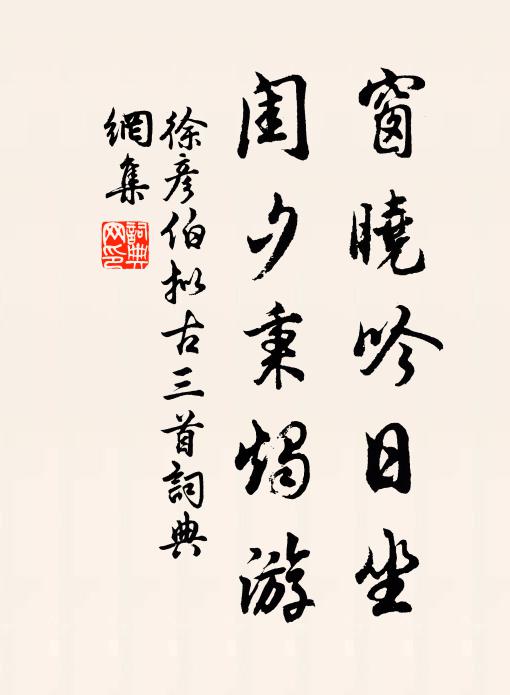 窗曉吟日坐
閨夕秉燭游
徐彥伯拟古三首詞典
網集
詞典
网印